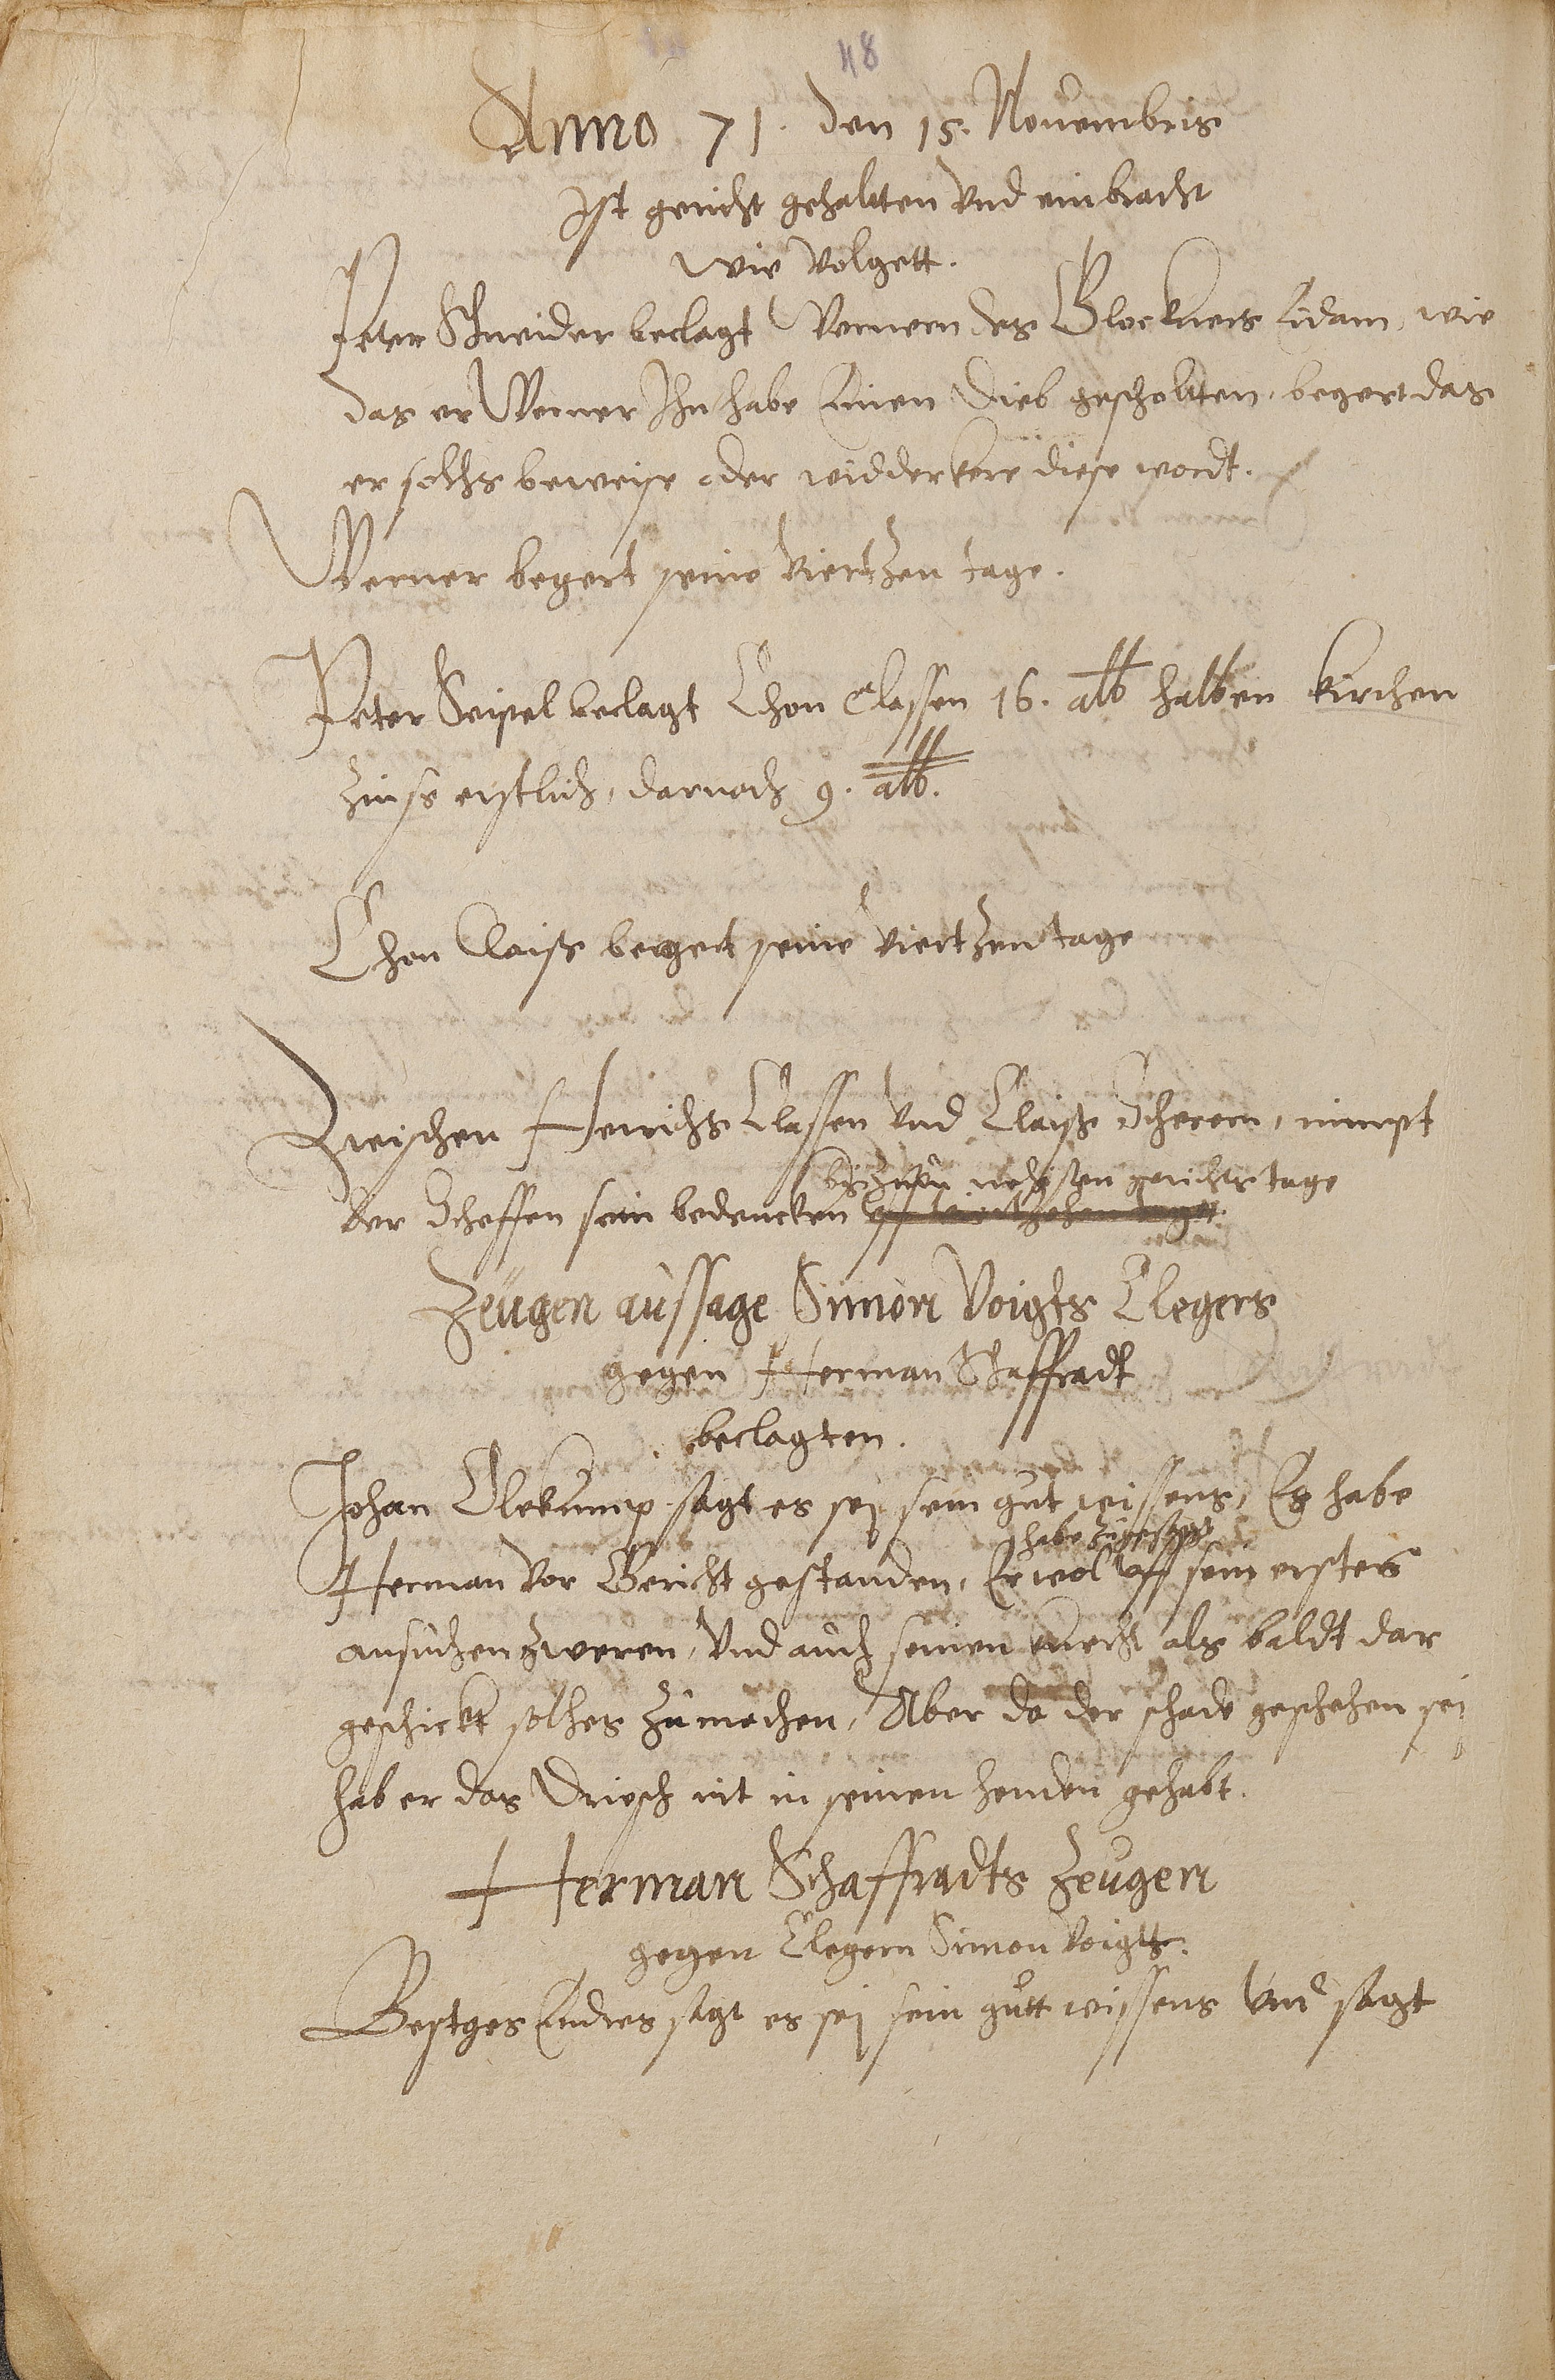 48
Anno 71. den 15. Nouembris
Ist gericht gehaltten vnd einbracht
wie volgett.
Peter Schneider beclagt Wernern des Glockners Eidam, wie
das er Werner Ihn habe Einen Dieb gescholtten, begert das
er solchs beweise oder widderkere diese wordt.
Werner begert seine viertzen tage.
Peter Seipel beclagt Chon Classen 16. alb halben kirchen
zinse erstlich, darnach 9. alb.
Chon Claiß begert seine viertzen tage
Zwischen Henrichs Classen vnd Claiß Scherern, nimpt
biß zum nehisten gerichts tage
der Scheffen sein bedencken vff viertzehen tage.
Zeugen aussage Simon Voigts Clegers
gegen Herman Schaffradt
beclagten.
Johan sagt es sej sein gut wissens, Es habe
habe zugesagt
Herman vor Gericht gestanden, Er wol vff sein erstes
ansuchen weren, vnd auch seinen knecht als baldt dar
geschickt solches zu machen, Aber da der schade geschehen sej
hab er das Driesch nit in seinen henden gehabt.
Herman Schaffradts Zeugen
gegen Clegern Simon Voigtt.
Bestges Endres sagt es sej sein gutt wissens vnd sagt